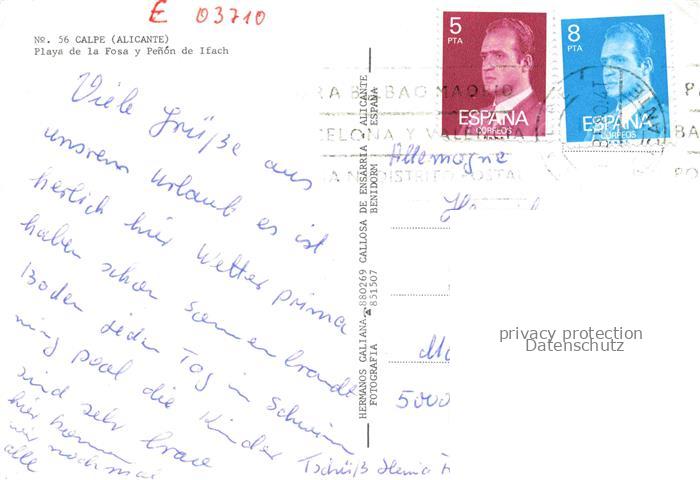 E 03710
Nº. 56 CALPE (ALICANTE)
Playa de la Fosa y Peñón de Ifach
Viele Grüße aus
unsrem Urlaub es ist
herlich hier Wetter prima
haben schon Sonnenbrandt
Boden jeden Tag in Schwim
ming pool die Kinder
sind sehr brave
hier kommen
wir nochmal
alle
Tschüß
HERMANOS GALIANA. 880269 CALLOSA DE ENSARRIA ALICANTE
FOTOGRAFIA ☎ 851507 BENIDORM ESPAÑA
5 PTA
ESPAÑA
CORREOS
8 PTA
ESPAÑA
CORREOS
BILBAO MADRID
Y VALENCIA
DISTRITO POSTAL
Allemagne
5000
privacy protection
Datenschutz